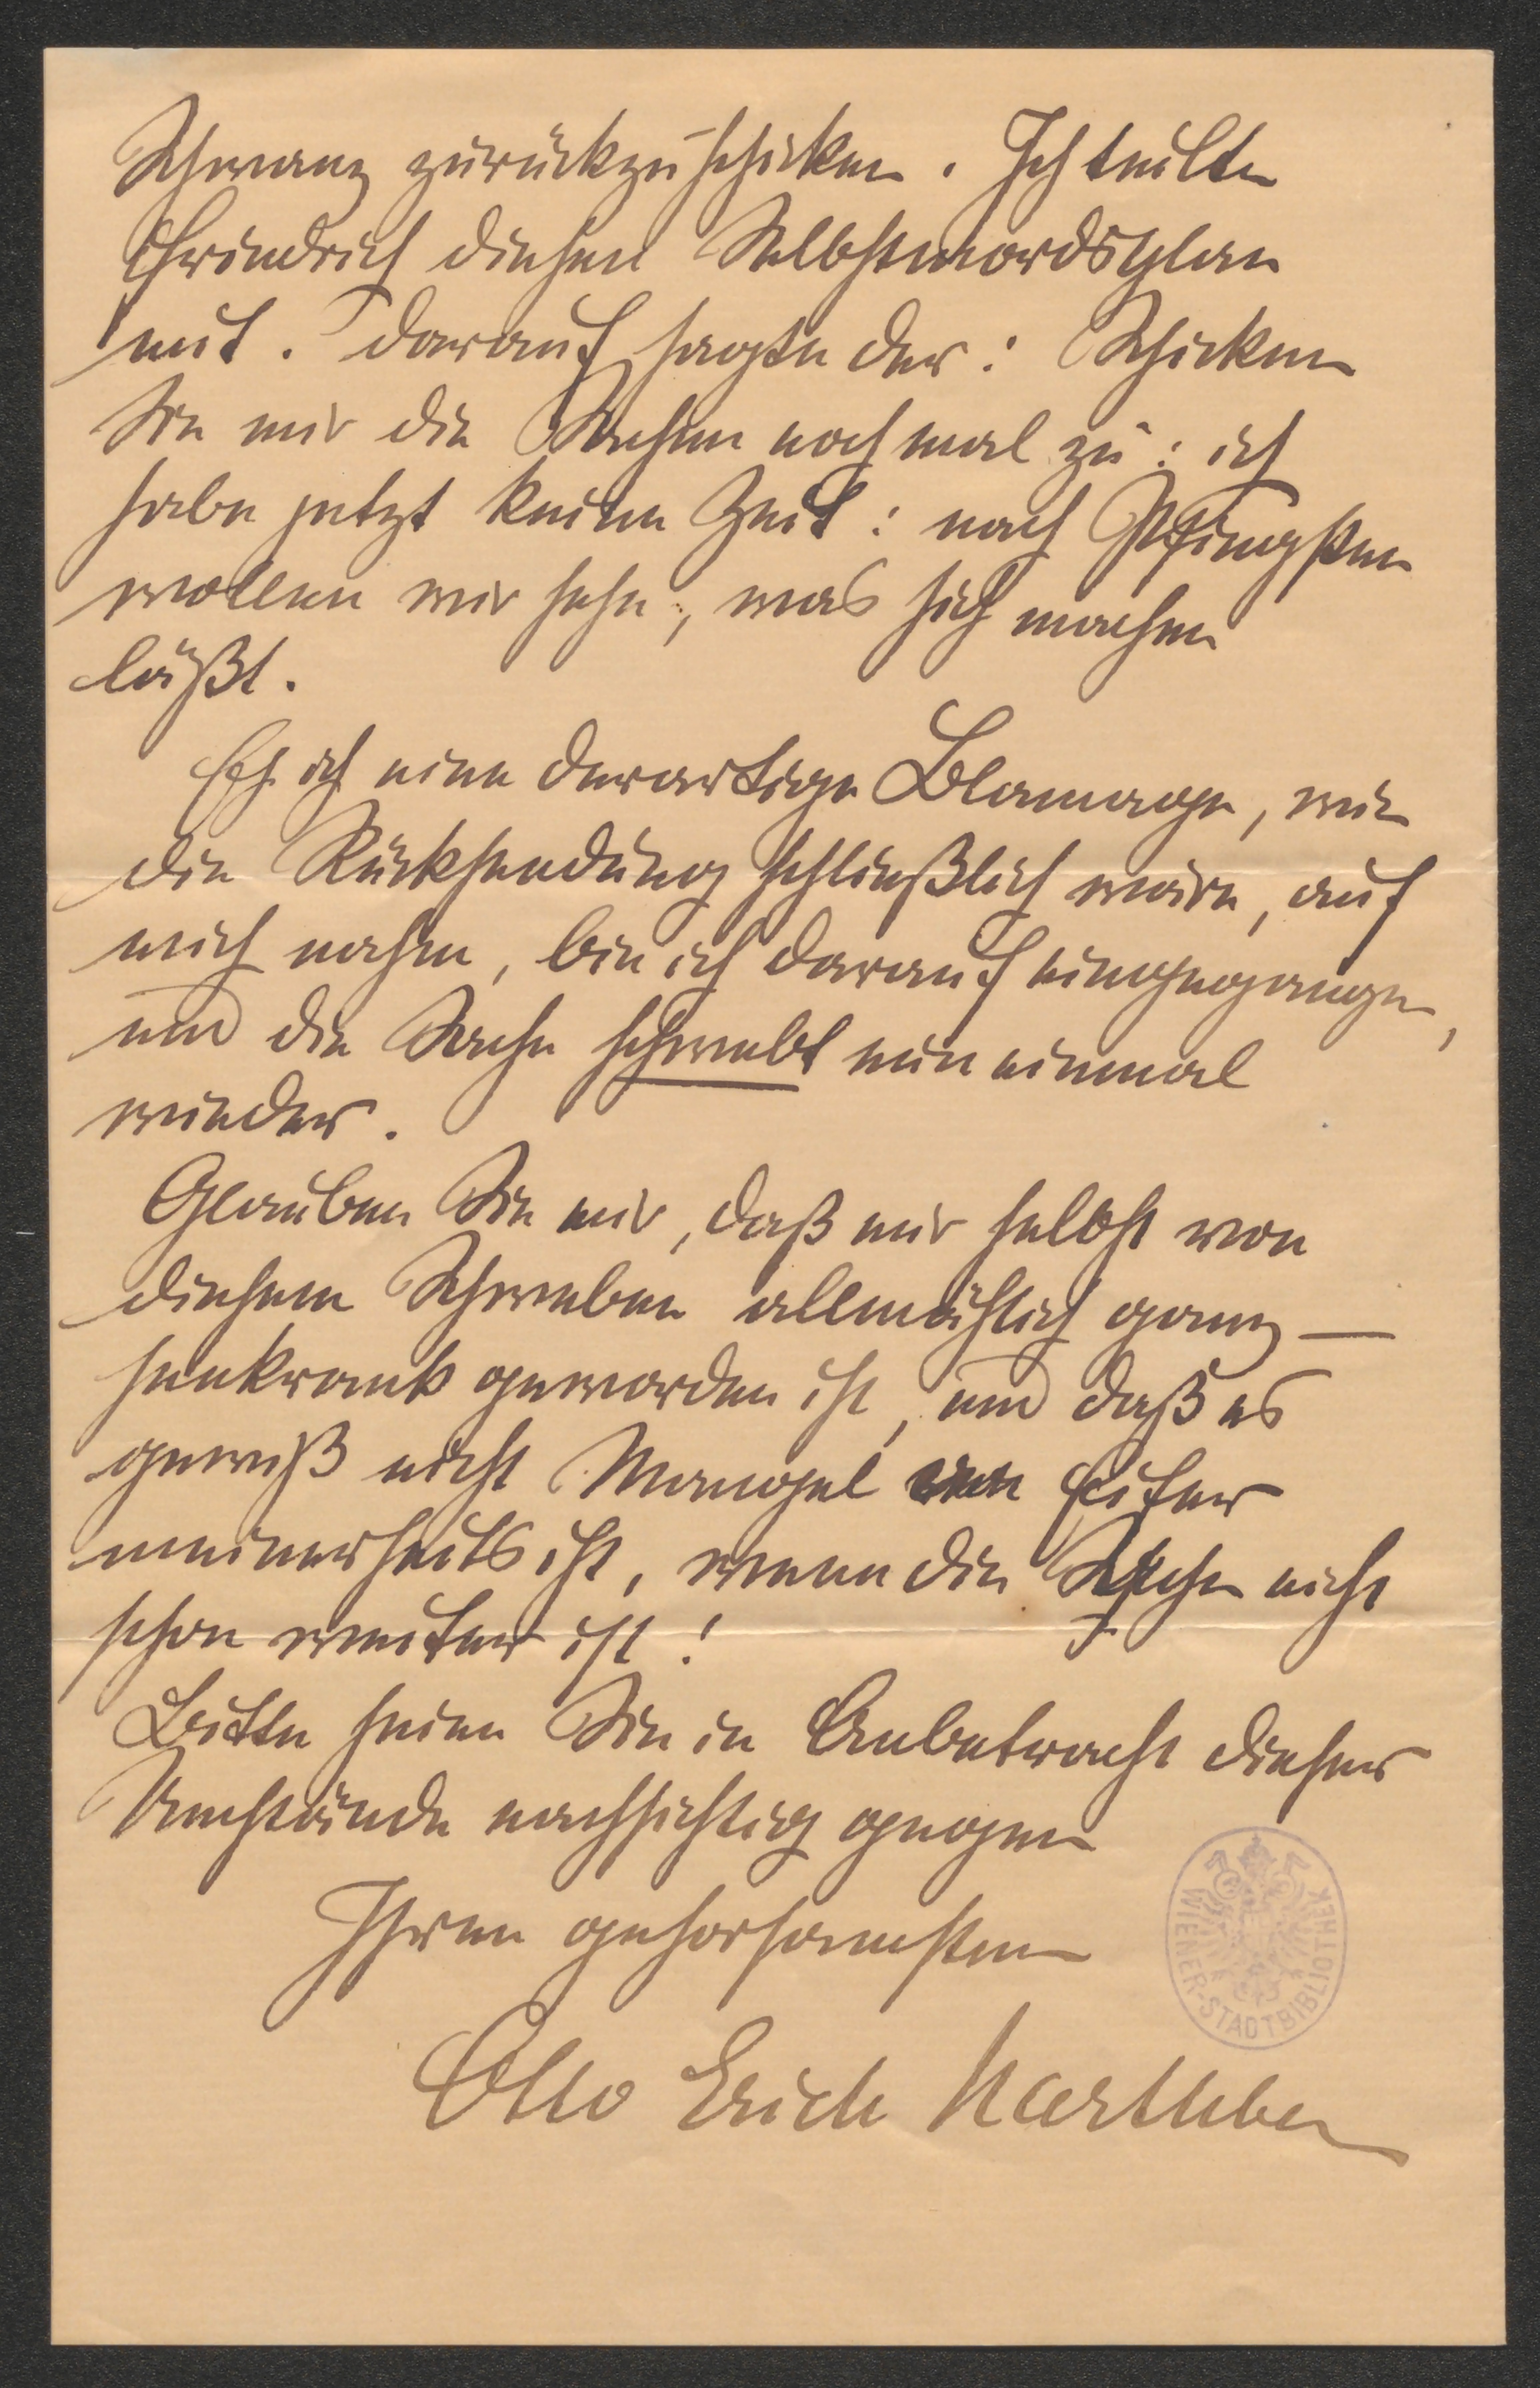 Schwanz zurückzuschicken. Ich teilte
Friedrich diesen Selbstmordsplan
mit. Darauf sagte der: Schicken
Sie mir die Sachen noch mal zu: ich
habe jetzt keine Zeit: nach Pfingsten
wollen wir sehn, was sich machen
läßt.
Eh ich eine derartige Blamage, wie
die Rücksendung schließlich wäre, auf
mich nahm, bin ich darauf eingegangen,
und die Sache schwebt nun einmal
wieder.
Glauben Sie mir, daß mir selbst von
diesem Schweben allmählich ganz —
seekrank geworden ist, und daß es
gewiß nicht Mangel von Eifer
meinerseits ist, wenn die Sache nicht
schon weiter ist!
Bitte seien Sie in Anbetracht dieser
Umstände nachsichtig gegen
Ihren gehorsamsten
Otto Erich Hartleben
WIENER-STADTBIBLIOTHEK